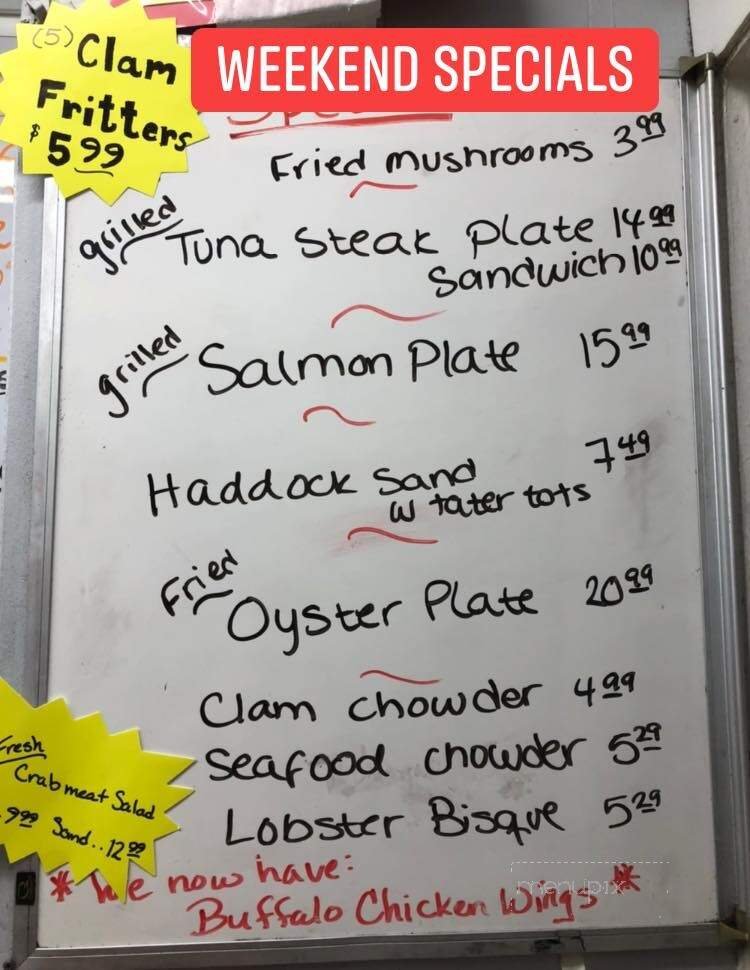 (5) Clam
Fritters
$5.99
WEEKEND SPECIALS
Fried mushrooms 3.99
grilled
Tuna Steak Plate 14.99
Sandwich 10.99
grilled
Salmon Plate 15.99
Haddock Sand 7.49
w tater tots
Fried
Oyster Plate 20.99
Clam chowder 4.99
Seafood chowder 5.29
Lobster Bisque 5.29
Fresh
Crabmeat Salad
9.99 Sand..12.99
* We now have:
Buffalo Chicken Wings *
menupix